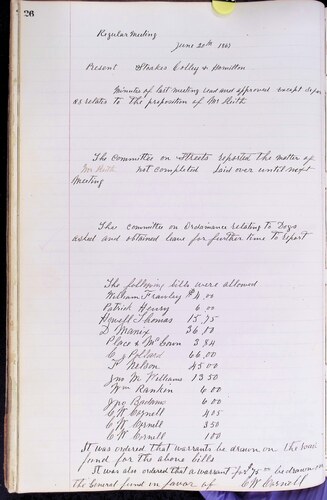 26
Regular Meeting
June 20th 1863
Present Stoakes Colley & Hamilton
Minutes of last meeting read and approved except
as relates to the proposition of Mr Keith
The Committee on Streets reported the matter of
Mr Keith not completed laid over until next
Meeting
The committee on Ordainance relating to Dogs
asked and obtained leave for further time to report
The following bills were allowed
William Frawley $ 4.00
Patrick Henry 6.00
Thomas 15.75
D Manix 36.18
Place & McCown 3.84
66.00
T Nelson 45.00
Jno M Williams 13 50
Wm Rankin 6.00
Jno 6.00
C W Cornell 405
C W Cornell 350
C W Cornell 100
It was ordered that warrants be drawn on the road
fund for the above bills
It was also ordered that a warrant for $75 00 be drawn on
the General fund in favor of C W Cornell